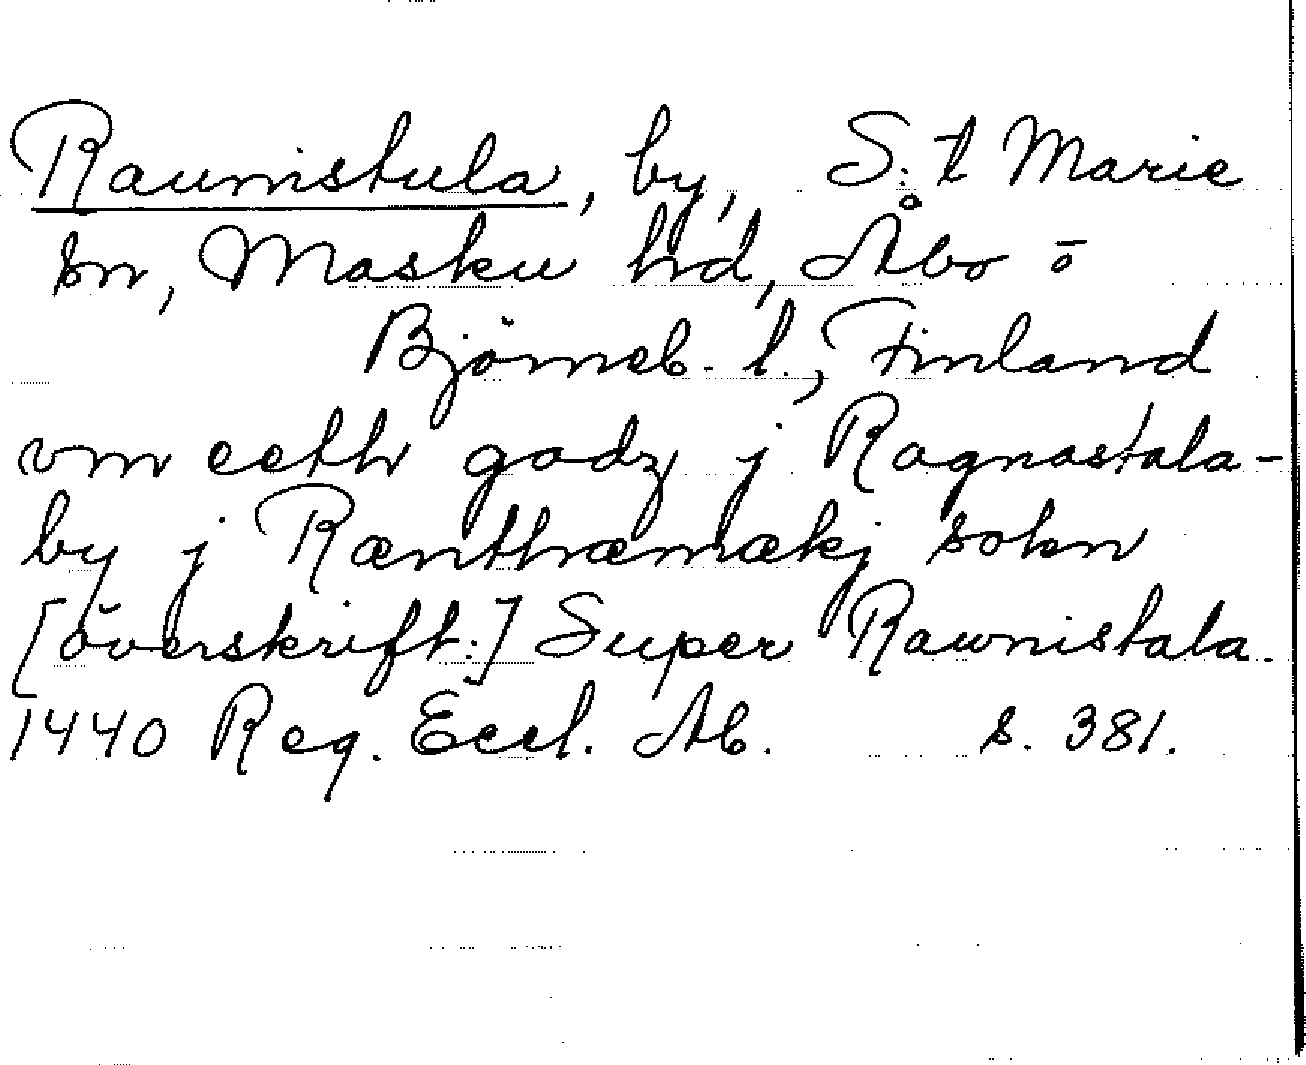 Raunistula, by, S:t Marie
sn, Masku hrd, Åbo o
Björneb. l., Finland
vm eeth godz j Ragnastala-
by j Rænthæmækj sokn
[överskrift:] Super Rawnistala.
1440 Reg. Eccl. Ab. s. 381.